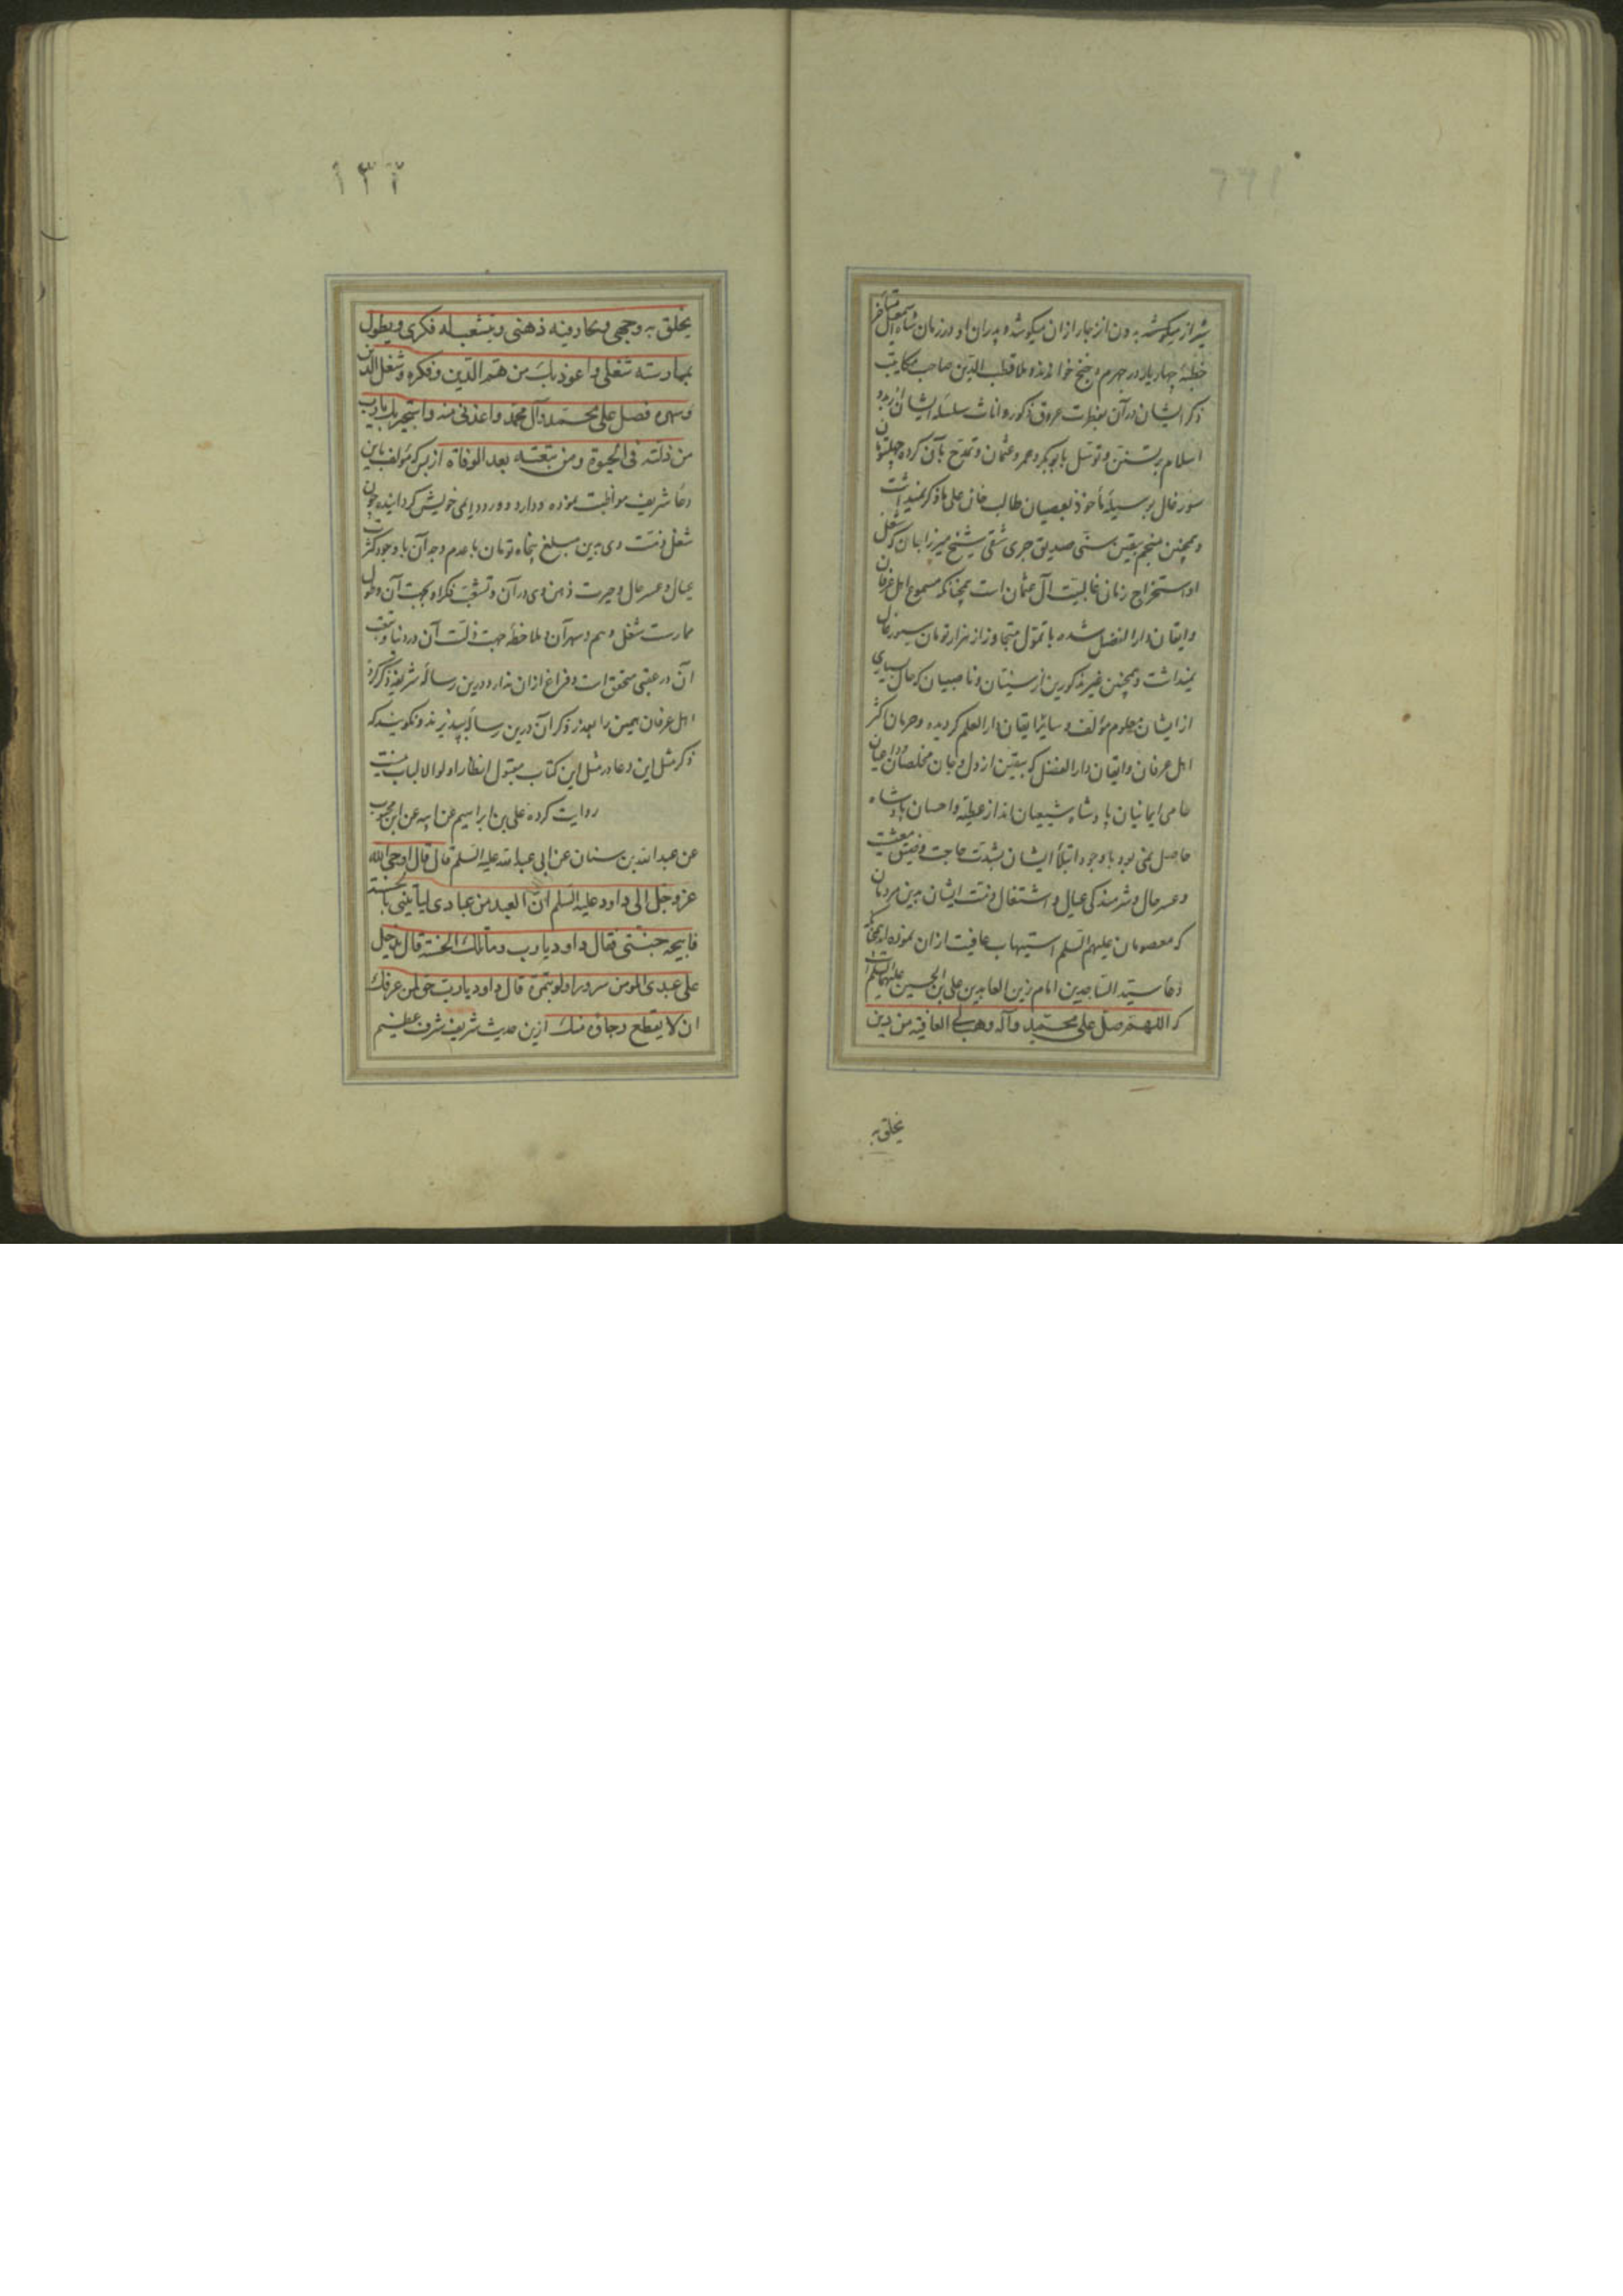 شیراز میکوشد بدون انزجار ازان میکوشد و پدران او در زمان شاه اسمعیل
خطبهٔ چهار یار در جهرم و خنج خوانده‌اند ملا قطب الدین صاحب مکاتیب
ذکر ایشان در آن بفطرت عروق ذکور و اناث سلسلهٔ ایشان از بدو
اسلام بر تسنن و توسل بابوبکر و عمر و عثمان و تمدح بآن کرده
سورغال بر سبیل مأخوذ بعصیان طالب خان علی ما ذکر نمیداشت
و همچنین منجم بیقین سنی صدیق جری شقی شیخ میرزا جان که شغل
او استخراج زمان غالبیت آل عثمان است همچنانکه مسموع اهل عرفان
و ایقان دار الفضل شده با تمول متجاوز از هزار تومان سیورغال
نمیداشت و همچنین غیر مذکورین از سنیان و ناصبیان که حال بسیاری
از ایشان معلوم مؤلف و سایر ایقان دار العلم گردیده و حرمان اکثر
اهل عرفان و ایقان دار الفضل که بیقین از دل و جان مخلصان و داعیان
حامی ایمانیان پادشاه شیعیان‌اند از عطیه و احسان پادشاه
حاصل نمی‌بود با وجود ابتلأ ایشان بشدت حاجت و ضیق معیشت
و عسر حال و شرمندگی عیال و اشتغال ذمت ایشان بدین مردمان
که معصومان علیهم السلم استیهاب عافیت ازان نموده‌اند همچنانکه
دعأ سید الساجدین امام زین العابدین علی بن الحسین علیهما السلم است
که اللهم صل علی محمد وآله وهب لی العافیة من دین
یخلق به
١٣٢
یخلق به وجهی ویحار فیه ذهنی ویتشعب له فکری ویطول
بممارسته شغلی واعوذ بک من هم الدین وفکره وشغل الدین
وسهره فصل علی محمد وآل محمد واعذنی منه واستجیر بک یا رب
من ذلته فی الحیوة ومن تبعته بعد الوفاة از بس که مؤلف باین
دعأ شریف مواظبت نموده و دارد و ورد دایمی خویش گردانیده چون
شغل ذمت وی بدین مبلغ پنجاه تومان با عدم وجد آن با وجود کثرت
عیال و عسر حال و حیرت ذهن وی در آن و تشعب فکر او بجهت آن و طول
ممارست شغل و هم و سهر آن و ملاحظهٔ جهت ذلت آن در دنیا و تبعت
آن در عقبی متحقق است و فراغ ازان ندارد درین رسالهٔ شریفه ذکر کرد
اهل عرفان همین را بعذر ذکر آن درین رساله بپذیرند و نگویند که
ذکر مثل این دعا در مثل این کتاب مقبول انظار اولوا الالباب نیست
روایت کرده علی بن ابراهیم عن ابیه عن ابن محبوب
عن عبد الله بن سنان عن ابی عبد الله علیه السلم قال قال اوحی الله
عز وجل الی داود علیه السلم ان العبد من عبادی لیأتینی بالحسنة
فابیحه جنتی فقال داود یا رب وما تلک الحسنة قال یدخل
علی عبدی المومن سرورا ولو بتمرة قال داود یا رب حق لمن عرفک
ان لا یقطع رجاؤه منک ازین حدیث شریف شرف عظیم